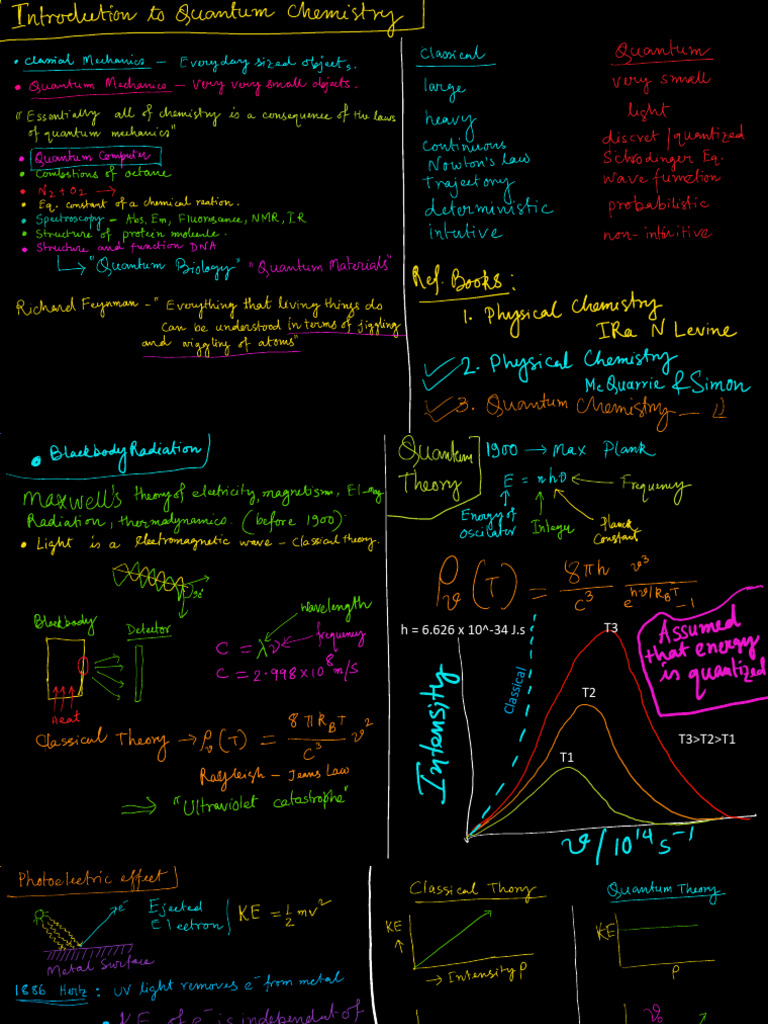 Introduction to Quantum Chemistry
• Classical Mechanics – Everyday sized objects.
• Quantum Mechanics – Very very small objects.
"Essentially all of chemistry is a consequence of the laws
of quantum mechanics"
• Quantum Computer
• Combustions of octane
• N2 + O2 →
• Eq. constant of a chemical reation.
• Spectroscopy – Abs, Em, Fluorosance, NMR, IR
• Structure of protein molecule.
• Structure and function DNA
↳ "Quantum Biology" "Quantum Materials"
Richard Feynman – "Everything that living things do
can be understood in terms of jiggling
and wiggling of atoms"
Classical Quantum
large very small
heavy light
continuous discret/quantized
Newton's law Schrodinger Eq.
Trajectory wave function
deterministic probabilistic
intutive non-intuitive
Ref. Books:
1. Physical Chemistry
IRa N Levine
2. Physical Chemistry
McQuarrie & Simon
3. Quantum Chemistry — "
• Blackbody Radiation
Maxwell's theory of electricity, magnetism, El-mag
Radiation, thermodynamics. (before 1900)
• Light is a electromagnetic wave – classical theory.
90°
Blackbody Detector
heat
wavelength
C = λν frequency
C = 2.998×10^8 m/s
Classical Theory → ρν(T) = 8πkBT/C^3 ν^2
Rayleigh – Jeans Law
⇒ "Ultraviolet catastrophe"
Quantum
Theory
1900 → Max Plank
E = nhν ← Frequency
Energy of
Oscilator
Integer
Planck
Constant
ρν(T) = 8πh/C^3 ν^3/(e^(hν/kBT) – 1)
h = 6.626 x 10^-34 J.s
Assumed
that energy
is quantized
Classical
Intensity
T3
T2
T1
T3>T2>T1
ν/10^14 s^-1
Photoelectric effect
e-
Ejected
Electron
KE = 1/2 mv^2
Metal Surface
1886 Hertz : UV light removes e- from metal
• KE of e- is independat of
Classical Thory Quantum Theory
KE
→ Intensity P
KE
P